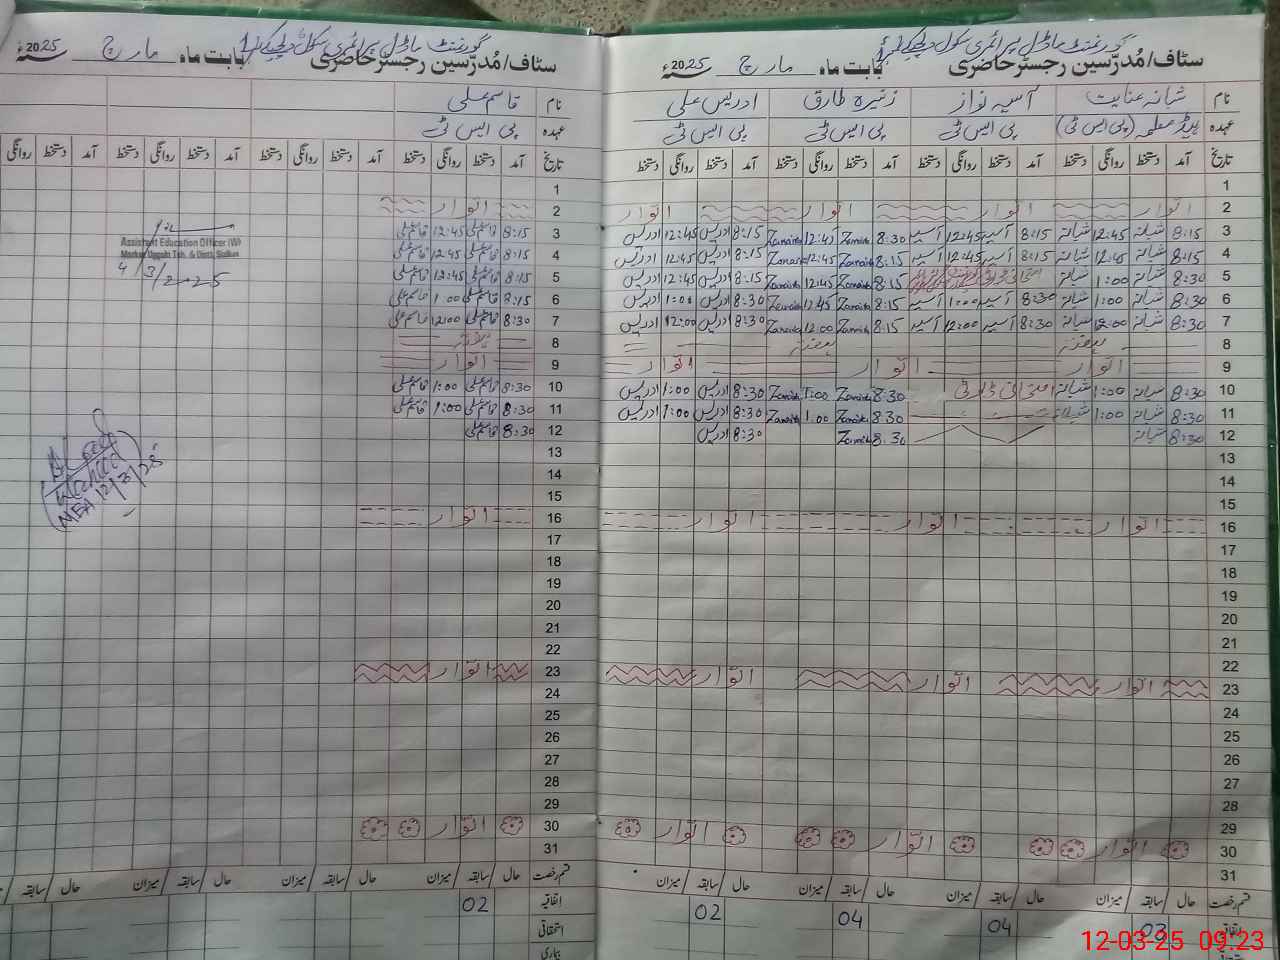 گورنمنٹ ماڈل پرائمری سکول
سٹاف/مُدرّسین رجسٹر حاضری بابت ماہ مارچ سنہ 2025ء
نام شبانہ عنایت آسیہ نواز زنیرہ طارق ادریس علی
عہدہ ہیڈ معلمہ (پی ایس ٹی) پی ایس ٹی پی ایس ٹی پی ایس ٹی
تاریخ آمد دستخط روانگی دستخط آمد دستخط روانگی دستخط آمد دستخط روانگی دستخط آمد دستخط روانگی دستخط
1
2 اتوار اتوار اتوار اتوار
3 8:15 شبانہ 12:45 شبانہ 8:15 آسیہ 12:45 آسیہ 8:30 Zanaira 12:45 Zanaira 8:15 ادریس 12:45 ادریس
4 8:15 شبانہ 12:45 شبانہ 8:15 آسیہ 12:45 آسیہ 8:15 Zanaira 12:45 Zanaira 8:15 ادریس 12:45 ادریس
5 8:30 شبانہ 1:00 شبانہ 8:15 Zanaira 12:45 Zanaira 8:15 ادریس 12:45 ادریس
6 8:30 شبانہ 1:00 شبانہ 8:30 آسیہ 1:00 آسیہ 8:15 Zanaira 12:45 Zanaira 8:30 ادریس 1:00 ادریس
7 8:30 شبانہ 12:00 شبانہ 8:30 آسیہ 12:00 آسیہ 8:15 Zanaira 12:00 Zanaira 8:30 ادریس 12:00 ادریس
8
9 اتوار اتوار اتوار
10 8:30 شبانہ 1:00 شبانہ امتحانی ڈیوٹی 8:30 Zanaira 1:00 Zanaira 8:30 ادریس 1:00 ادریس
11 8:30 شبانہ 1:00 شبانہ 8:30 Zanaira 1:00 Zanaira 8:30 ادریس 1:00 ادریس
12 8:30 شبانہ 8:30 Zanaira 8:30 ادریس
13
14
15
16 اتوار اتوار اتوار
17
18
19
20
21
22
23 اتوار اتوار اتوار
24
25
26
27
28
29
30 اتوار اتوار اتوار
31
قسم رخصت حال / سابقہ / میزان حال / سابقہ / میزان حال / سابقہ / میزان حال / سابقہ / میزان
اتفاقیہ 03 04 04 02
گورنمنٹ ماڈل پرائمری سکول
سٹاف/مُدرّسین رجسٹر حاضری بابت ماہ مارچ سنہ 2025ء
نام قاسم علی
عہدہ پی ایس ٹی
تاریخ آمد دستخط روانگی دستخط آمد دستخط روانگی دستخط آمد دستخط روانگی دستخط آمد دستخط روانگی
1
2 اتوار
3 8:15 قاسم علی 12:45 قاسم علی
4 8:15 قاسم علی 12:45 قاسم علی
5 8:15 قاسم علی 12:45 قاسم علی
6 8:15 قاسم علی 1:00 قاسم علی
7 8:30 قاسم علی 12:00 قاسم علی
8
9 اتوار
10 8:30 قاسم علی 1:00 قاسم علی
11 8:30 قاسم علی 1:00 قاسم علی
12 8:30 قاسم علی
13
14
15
16 اتوار
17
18
19
20
21
22
23 اتوار
24
25
26
27
28
29
30 اتوار
31
قسم رخصت حال / سابقہ / میزان حال / سابقہ / میزان حال / سابقہ / میزان حال / سابقہ
اتفاقیہ 02
استحقاقی
بیماری
Assistant Education Officer (W)
4/3/2025
MEA 12/3/25
12-03-25 09:23